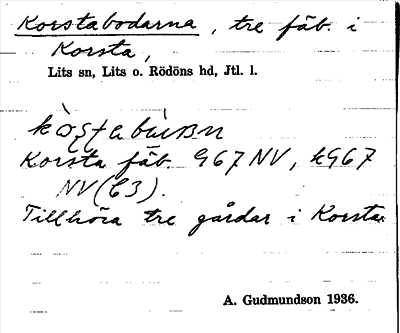 Korstabodarna, tre fäb. i
Korsta,
Lits sn, Lits o. Rödöns hd, Jtl. l.
Korsta fäb. 967 NV, k967
NV (C3).
Tillhöra tre gårdar i Korsta.
A. Gudmundson 1936.